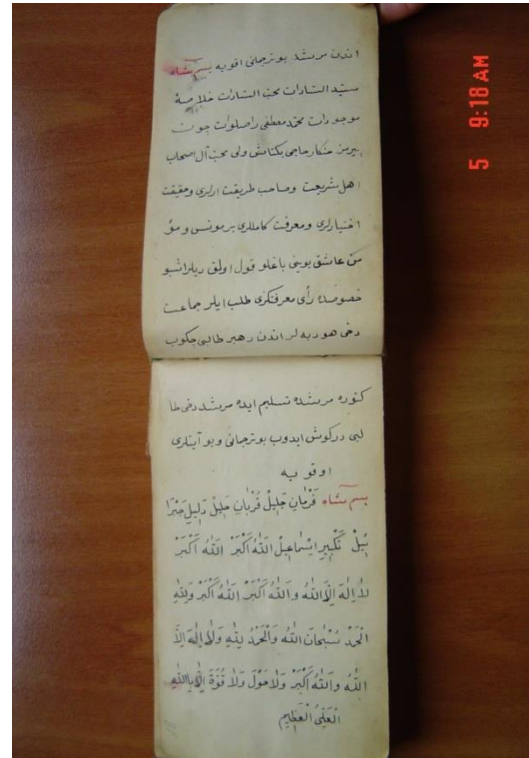 اندن مرشد بوترجمانی اقویه بسم شاه
سید السادات محب السادات خلاصهٔ
موجودات محمد مصطفی را صلوات جون
پیرمز خنکار حاجی بکتاش ولی محب آل اصحاب
اهل شریعت وصاحب طریقت ارلری وحقیقت
اختیارلری ومعرفت کاملری برمونس ومؤ
من عاشق بوینی باغلو قول اولق دیلر اشبو
خصوصده رأی معرفتکزی طلب ایلر جماعت
دخی هو دیه لر اندن رهبر طالبی چکوب
کتوره مرشده تسلیم ایده مرشد دخی طا
لبی درکوش ایدوب بوترجمانی وبو آیتلری
اوقویه
بسم شاه فَرْمَانِ جَلِيلْ قُرْبَانِ خَلِيلْ دَلِيلِ جَبْرَا
ئِيلْ تَكْبِيرِ اِسْمَاعِيلْ اَللّٰهُ اَكْبَرْ اَللّٰهُ اَكْبَرْ
لَا اِلٰهَ اِلَّا اللّٰهُ وَاَللّٰهُ اَكْبَرْ اَللّٰهُ اَكْبَرْ وَلِلّٰهِ
الْحَمْدْ سُبْحَانَ اللّٰهُ وَالْحَمْدُ لِلّٰهِ وَلَا اِلٰهَ اِلَّا
اللّٰهُ وَاَللّٰهُ اَكْبَرْ وَلَا حَوْلَ وَلَا قُوَّةَ اِلَّا بِاللّٰهِ
الْعَلِيُّ الْعَظِيمِ
5 9:18 AM